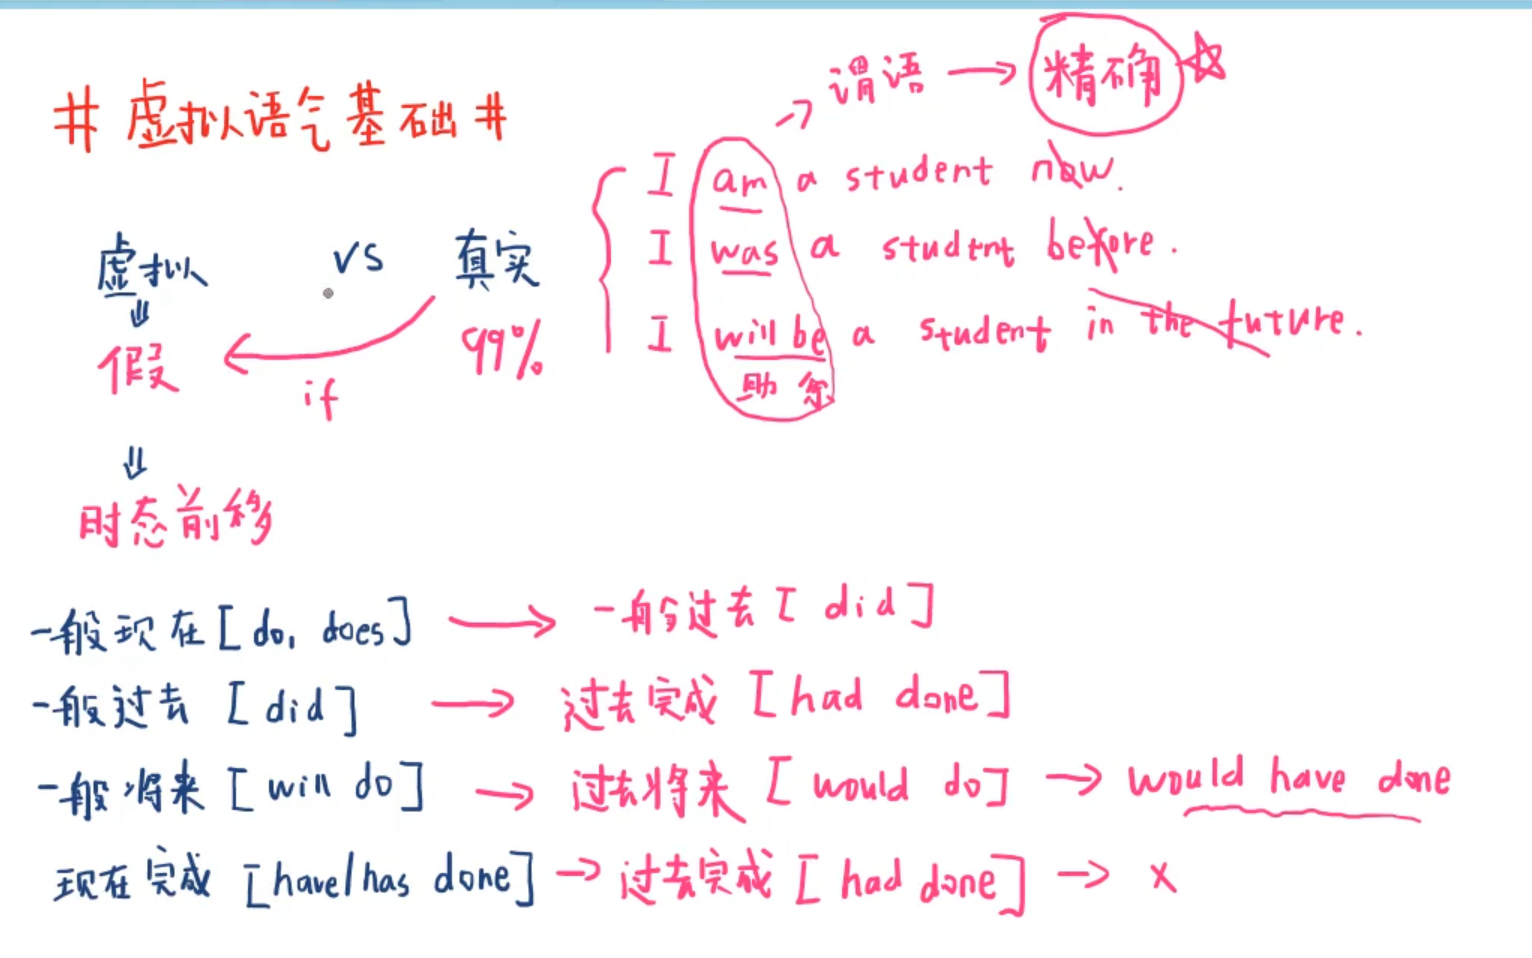 # 虚拟语气基础 #
谓语 → 精确 ☆
I am a student now.
I was a student before.
I will be a student in the future.
助
虚拟 vs 真实
假 if 99%
时态前移
一般现在 [do, does] → 一般过去 [did]
一般过去 [did] → 过去完成 [had done]
一般将来 [will do] → 过去将来 [would do] → would have done
现在完成 [have/has done] → 过去完成 [had done] → x